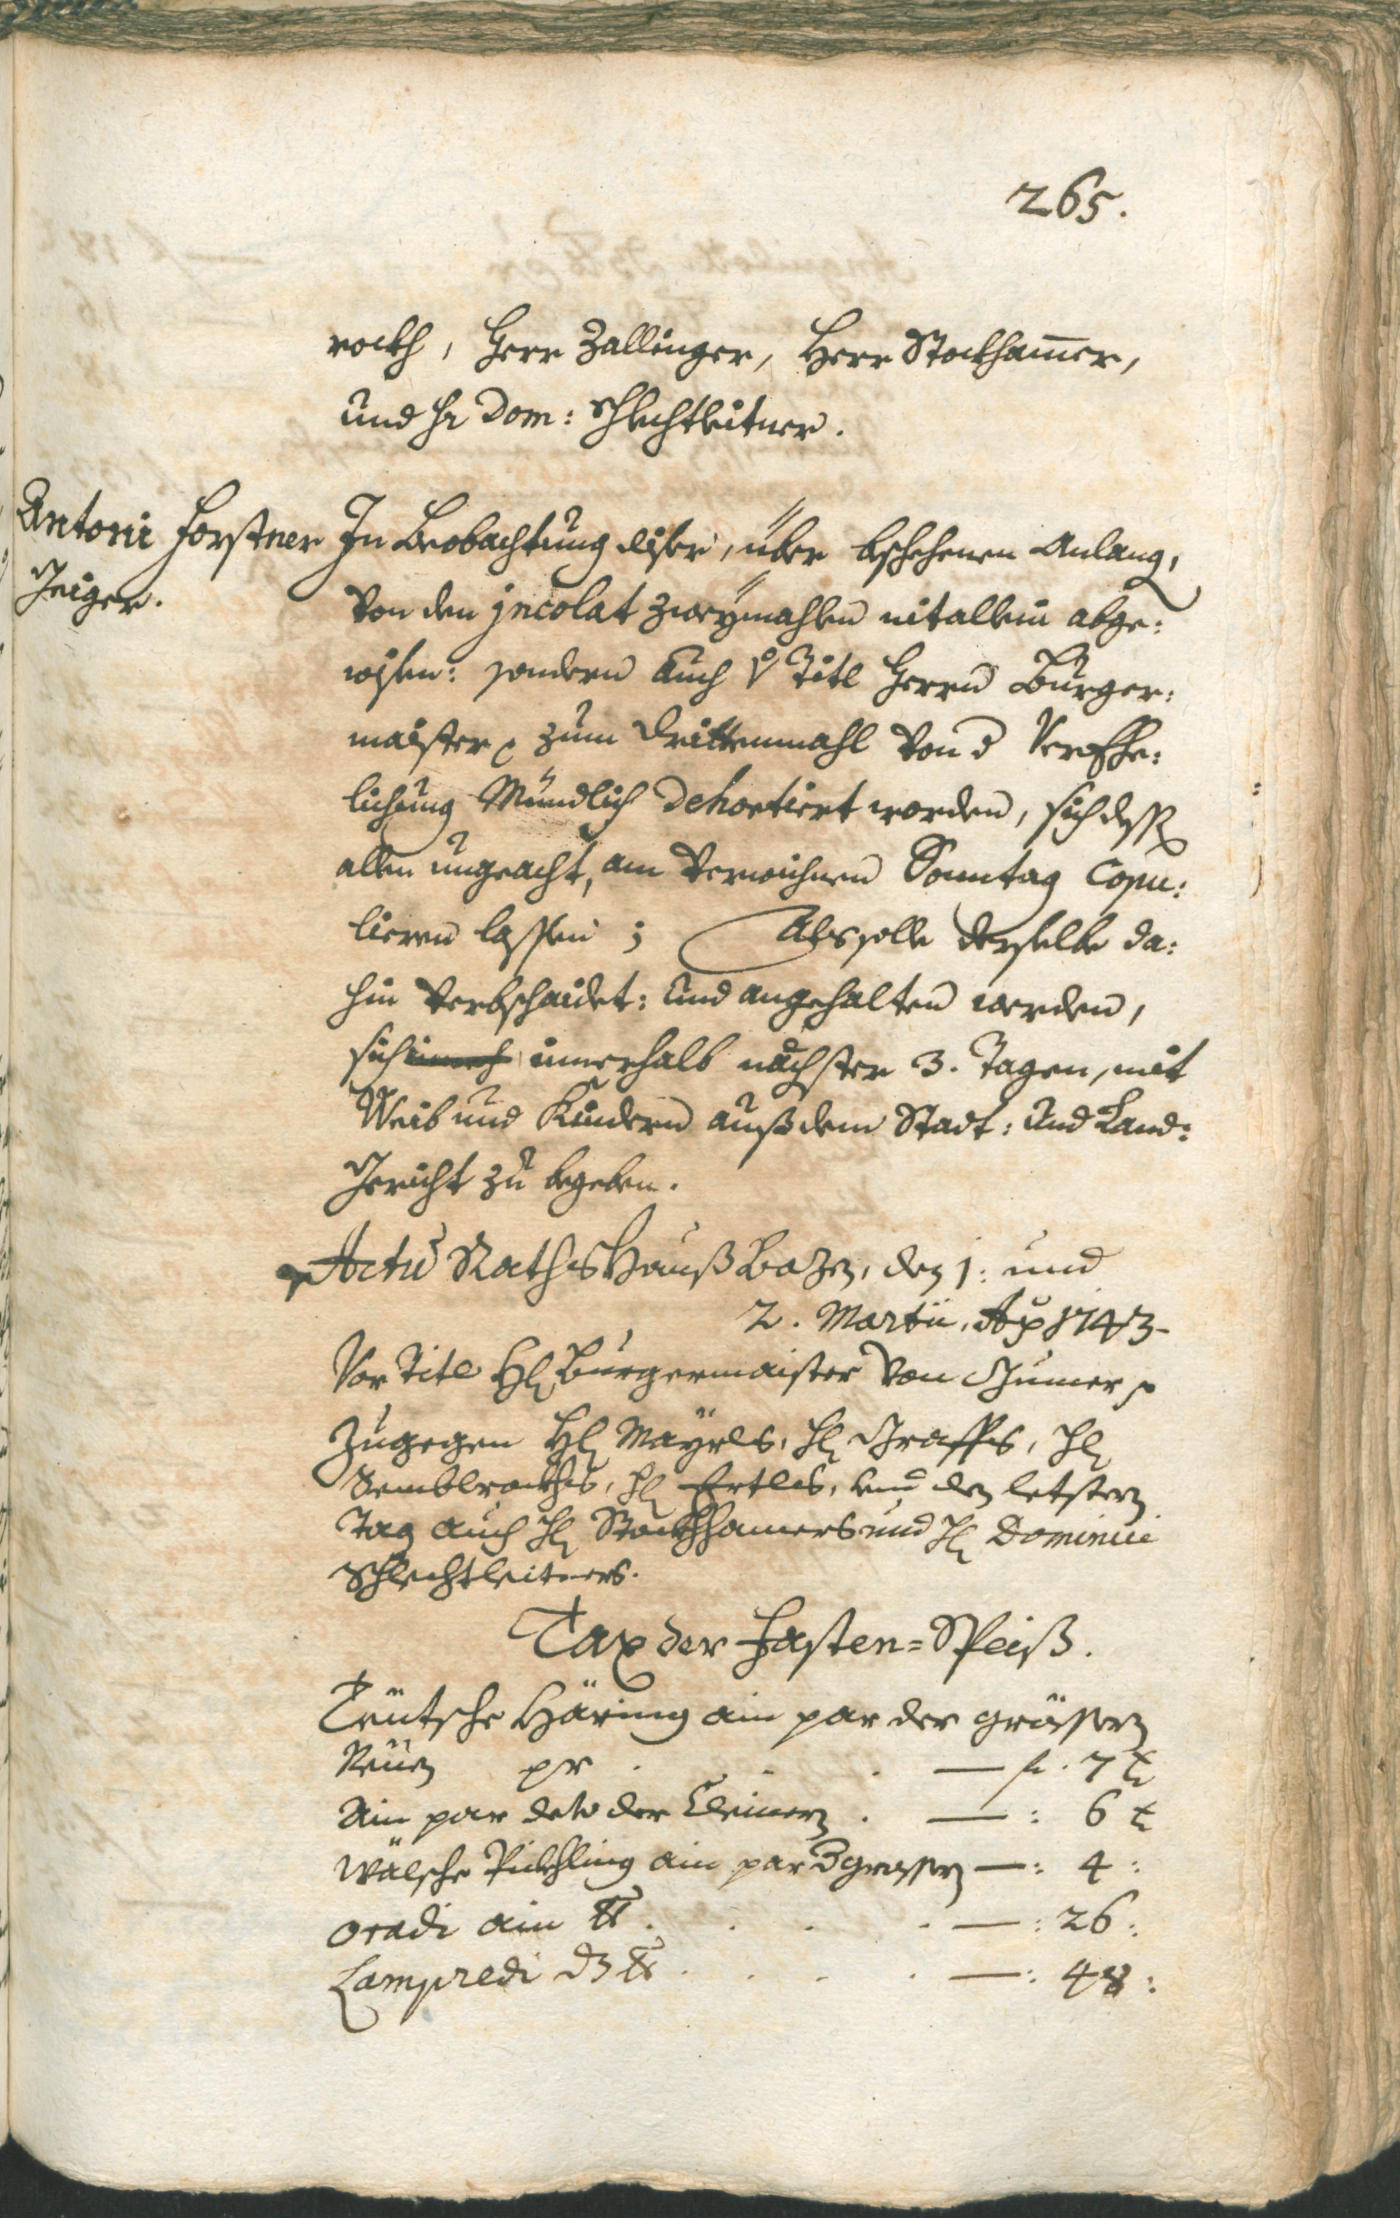 265.
rockh, Herr Zallinger, Herr Stockham̅er,
und Hr Dom: Schlechtleitner.
Antoni Forstner
Geiger.
In Beobachtung diser, über beschehenen Anlang,
von den jncolat zweÿmahlen nit allein abge:
wisen: sondern auch Titl Herrn Burger:
maister zum drittenmahl von d Verehe:
lichung Mündlich dehortiert worden, sich dess
allen ungeacht, am verwichnen Sonntag copu:
lieren lassen; Als solle derselbe da:
hin verbschaidet: und angehalten werden,
sich innerhalb nächster 3. Tagen, mit
Weib und Kindern auß dem Stadt: und Land:
Gericht zu begeben.
Actū Raths Hauß Bozen, den 1: und
2. Martii, Aō 1743.
Vor Titl H Burgermaister von Gumer p
Zugegen H Mayrls, H Graffs, H
Rembl rockhs, H Ertles, und den letsten
Tag auch H Stockhhamers und H Dominici
Schlechtleitners.
Tax der Fasten=Speiß.
Teütsche Häring ain par der grössern
Neüen pr . . . — f. 7 x
Ain par deto der Kleinern . — : 6 x
Wälsche Pickhling ain par d grossen — : 4 :
Oradi ain ℔ . . . . — : 26 :
Lampredi d3 ℔ . . . . — : 48 :